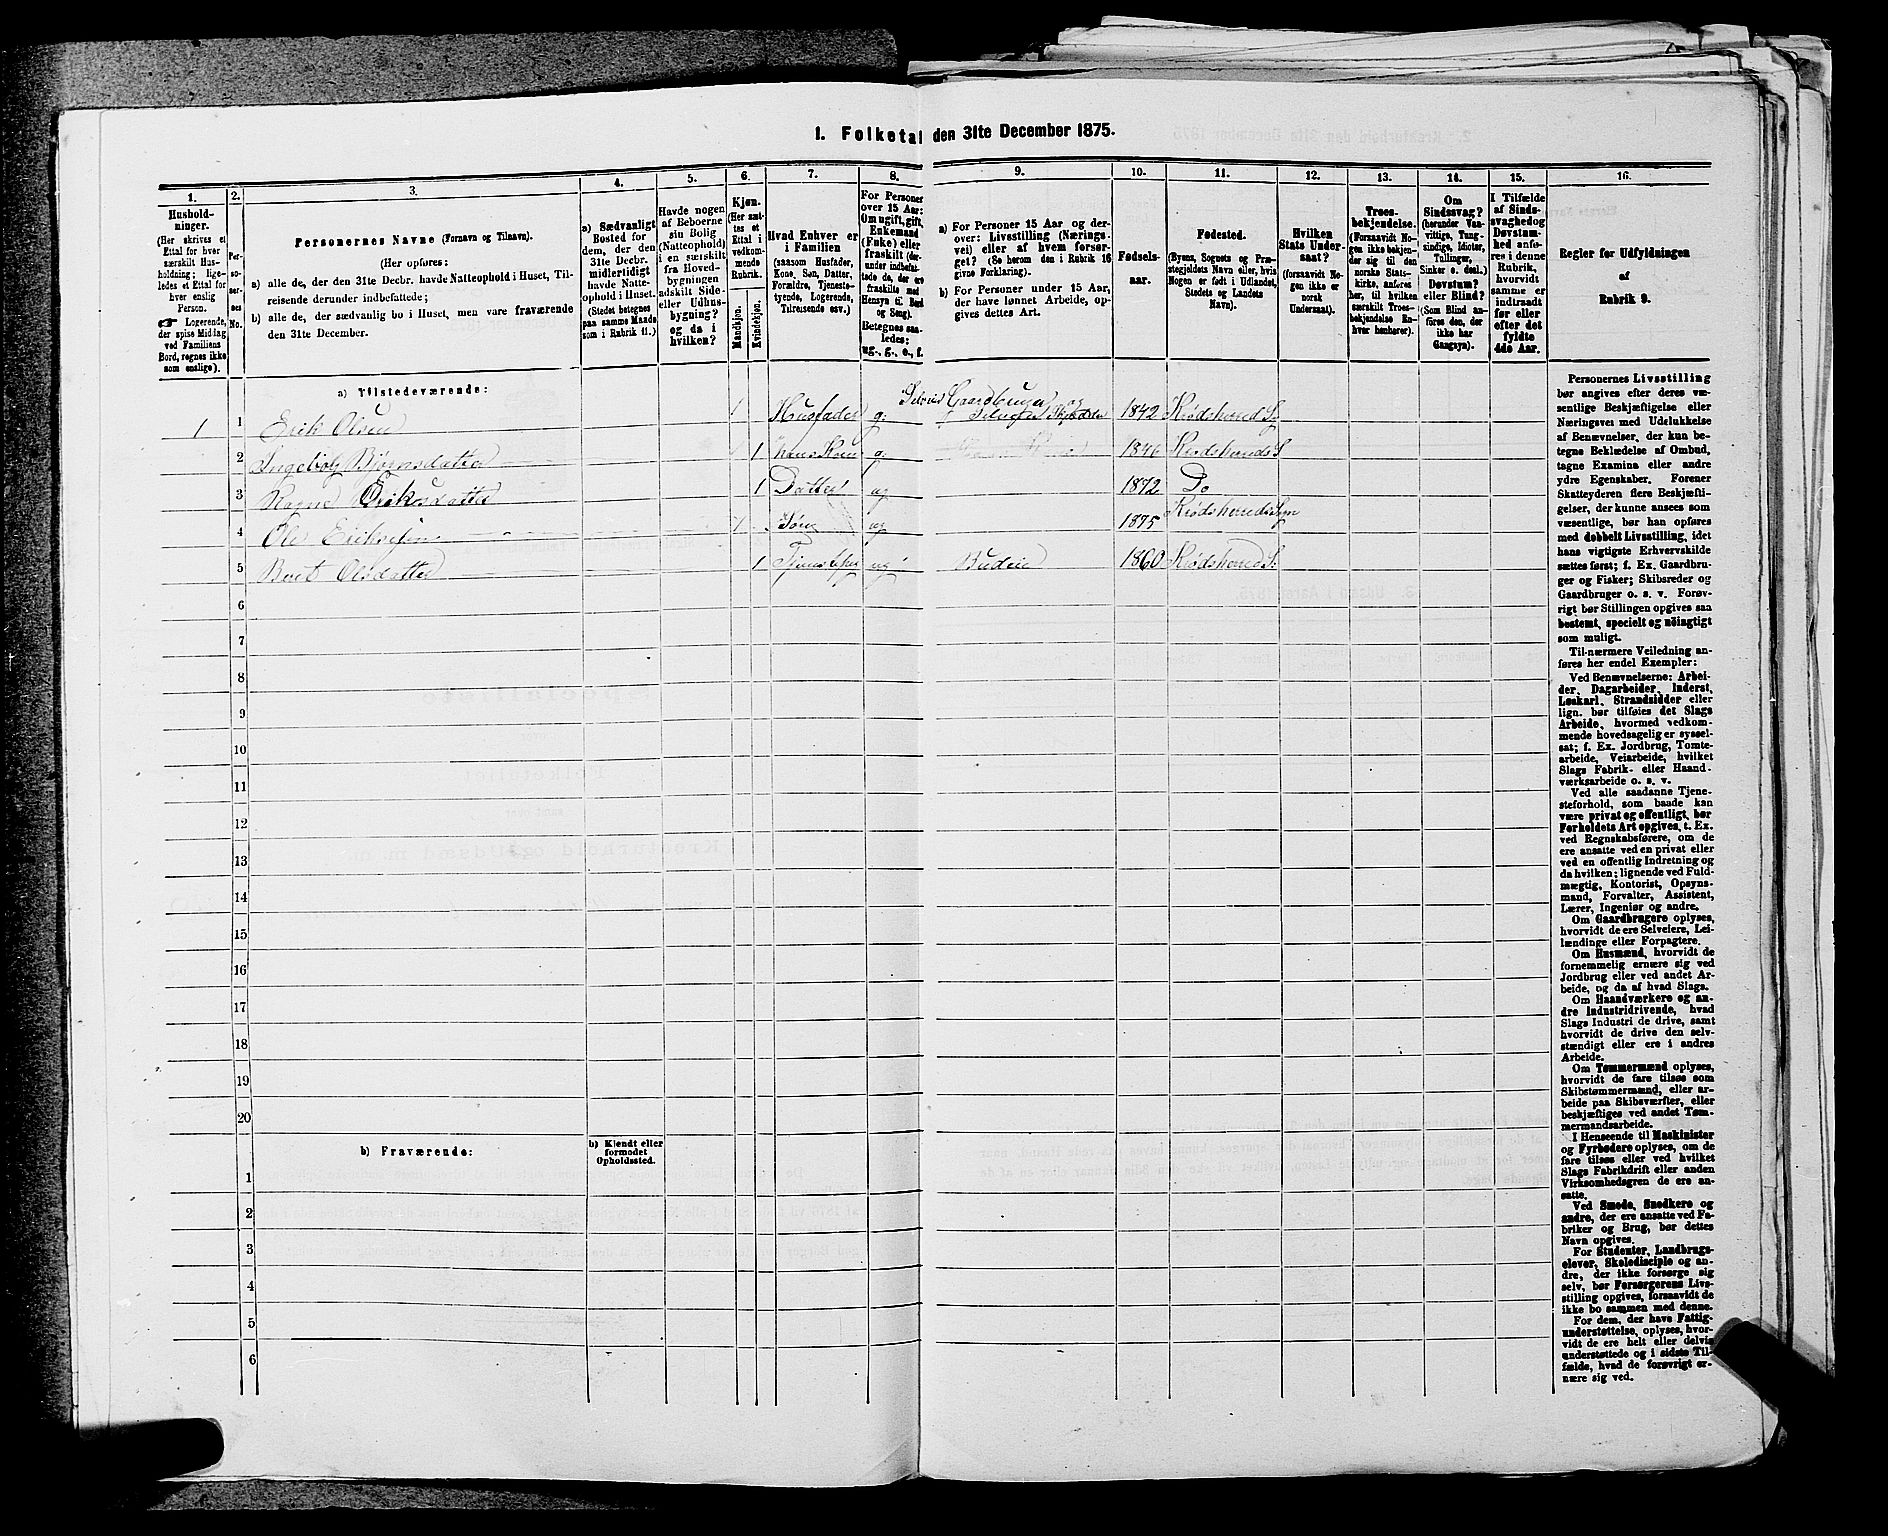 1. Folketal den 31te December 1875.
1.
2.
3.
4.
5.
6.
7.
8.
9.
10.
11.
12.
13.
14.
15.
16.
Hushold-
ninger.
(Her skrives et
Ettal for hver
særskilt Hus-
holdning; lige-
ledes et Ettal for
hver enslig
Person.
☛ Logerende,
der spise Middag
ved Familiens
Bord, regnes ikke
som enslige).
Per-
so-
ner-
nes
No.
Personernes Navne (Fornavn og Tilnavn).
(Her opføres:
a) alle de, der den 31te Decbr. havde Natteophold i Huset, Til-
reisende derunder indbefattede;
b) alle de, der sædvanlig bo i Huset, men vare fraværende
den 31te December.
a) Sædvanligt
Bosted for
dem, der den
31te Decbr.
midlertidigt
havde Natte-
ophold i Huset.
(Stedet betegnes
paa samme Maade
som i Rubrik 11.)
Havde nogen
af Beboerne
sin Bolig
(Natteophold)
i en særskilt
fra Hoved-
bygningen
adskilt Side-
eller Udhus-
bygning?
og da i
hvilken?
Kjøn.
(Her sæt-
tes et
Ettal i
vedkom-
mende
Rubrik.
Mandkjøn.
Kvindekjøn.
Hvad Enhver er
i Familien
(saasom Husfader,
Kone, Søn, Datter,
Forældre, Tjeneste-
tyende, Logerende,
Tilreisende osv.)
For Personer
over 15 Aar:
Om ugift, gift,
Enkemand
(Enke) eller
fraskilt (der-
under indbefat-
tede de, der ere
fraskilte med
Hensyn til Bord
og Seng).
Betegnes saa-
ledes:
ug., g., e., f.
a) For Personer 15 Aar og der-
over: Livsstilling (Nærings-
vei) eller af hvem forsør-
get? (Se herom den i Rubrik 16
givne Forklaring).
b) For Personer under 15 Aar,
der have lønnet Arbeide, op-
gives dettes Art.
Fødsels-
aar.
Fødested.
(Byens, Sognets og Præ-
stegjeldets Navn eller, hvis
Nogen er født i Udlandet,
Stedets og Landets
Navn).
Hvilken
Stats Under-
saat?
(forsaavidt No-
gen ikke er
norsk
Undersaat).
Troes-
bekjendelse.
(Forsaavidt No-
gen ikke bekjen-
der sig til den
norske Stats-
kirke, anføres
her, til hvilken
særskilt Troes-
bekjendelse En-
hver henhører).
Om
Sindssvag?
(herunder Van-
vittige, Tung-
sindige, Idioter,
Tullinger,
Sinker o. desl.)
Døvstum?
eller Blind?
(Som Blind an-
føres den, der
ikke har
Gangsyn).
I Tilfælde
af Sinds-
svaghed og
Døvstum-
hed anfø-
res i denne
Rubrik,
hvorvidt
samme er
indtraadt
før eller
efter det
fyldte
4de Aar.
Regler for Udfyldningen
af
Rubrik 9.
a) Tilstedeværende:
1 1 Erik Olsen 1 Husfader g: Selveier Gaardbruger og 1842 Krødsherred S:
2 Ingeborg Bjørnsdatter 1 hans Kone g: 1846 Krødsherreds S
3 Ragne Eriksdatter 1 Datter ug 1872 Do
4 Ole Eriksen 1 Søn ug 1875 Krødsherreds Sogn
5 Berit Olsdatter 1 ug Budeie 1860 Krødsherred S:
6
7
8
9
10
11
12
13
14
15
16
17
18
19
20
b) Fraværende:
b) Kjendt eller
formodet
Opholdssted.
1
2
3
4
5
6
Personernes Livsstilling
bør angives efter deres væ-
sentlige Beskjæftigelse eller
Næringsvei med Udelukkelse
af Benævnelser, der kun be-
tegne Beklædelse af Ombud,
tagne Examina eller andre
ydre Egenskaber. Forener
Skatteyderen flere Beskjæfti-
gelser, der kunne ansees som
væsentlige, bør han opføres
med dobbelt Livsstilling, idet
hans vigtigste Erhvervskilde
sættes først; f. Ex. Gaardbru-
ger og Fisker; Skibsreder og
Gaardbruger o. s. v. Forøv-
rigt bør Stillingen opgives saa
bestemt, specielt og nöiagtigt
som muligt.
Til nærmere Veiledning an-
føres her endel Exempler:
Ved Benævnelserne: Arbei-
der, Dagarbeider, Inderst,
Løskarl, Strandsidder eller
lign. bør tilføies det Slags
Arbeide, hvormed vedkom-
mende hovedsagelig er syssel-
sat; f. Ex. Jordbrug, Tomte-
arbeide, Veiarbeide, hvilket
Slags Fabrik- eller Haand-
værksarbeide o. s. v.
Ved alle saadanne Tjene-
steforhold, som baade kan
være privat og offentligt, bør
Forholdets Art opgives, t. Ex.
ved Regnskabsførere, om de
ere ansatte ved en privat eller
ved en offentlig Indretning og
da hvilken; lignende ved Fuld-
mægtig, Kontorist, Opsyns-
mand, Forvalter, Assistent,
Lærer, Ingeniør og andre.
Om Gaardbrugere oplyses,
hvorvidt de ere Selveiere, Lei-
lændinge eller Forpagtere.
Om Husmænd, hvorvidt de
fornemmelig ernære sig ved
Jordbrug eller ved andet Ar-
beide, og da af hvad Slags.
Om Haandværkere og an-
dre Industridrivende, hvad
Slags Industri de drive, samt
hvorvidt de drive den selv-
stændigt eller ere i andres
Arbeide.
Om Tømmermænd oplyses,
hvorvidt de fare tilsøs som
Skibstømmermænd, eller ar-
beide paa Skibsværfter, eller
beskjæftiges ved andet Tøm-
mermandsarbeide.
I Henseende til Maskinister
og Fyrbødere oplyses, om de
fare tilsøs eller ved hvilket
Slags Fabrikdrift eller anden
Virksomhedsgren de ere an-
satte.
Ved Smede, Snedkere og
andre, der ere ansatte ved Fa-
briker og Brug, bør dettes
Navn opgives.
For Studenter, Landbrugs-
elever, Skoledisciple og an-
dre, der ikke forsørge sig
selv, bør Forsørgerens Livs-
stilling opgives, forsaavidt de
ikke bo sammen med denne.
For dem, der have Fattig-
understøttelse, oplyses, hvor-
vidt de ere helt eller delvis
understøttede og i sidste Til-
fælde, hvad de forøvrigt er-
nære sig ved.